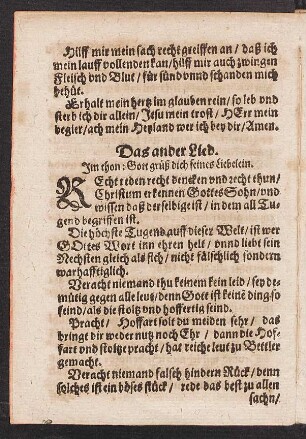 Hilff mir mein sach recht greiffen an / daß ich
mein lauff vollenden kan / hilff mir auch zwingen
Fleisch vnd Blut / für sünd vnnd schanden mich
behüt.
Erhalt mein hertz im glauben rein / so leb vnd
sterb ich dir allein / Jesu mein trost / HErr mein
begier / ach mein Heyland wer ich bey dir / Amen.
Das ander Lied.
Im thon: Gott grüß dich feines Liebelein.
REcht reden recht dencken vnd recht thun /
Christum erkennen Gottes Sohn / vnd
wissen daß derselbige ist / in dem all Tu-
gend begriffen ist.
Die höchste Tugend auff dieser Welt / ist wer
GOttes Wort inn ehren helt / vnnd liebt sein
Nechsten gleich als sich / nicht fälschlich sondern
warhafftiglich.
Veracht niemand thu keinem kein leid / sey de-
mütig gegen alle leut / denn Gott ist keinē ding so
feind / als die stoltz vnd hoffertig seind.
Pracht / Hoffart solt du meiden sehr / das
bringt dir weder nutz noch Ehr / dann die Hof-
fart vnd stoltze pracht / hat reiche leut zu Bettler
gemacht.
Veracht niemand falsch hindern Rück / denn
solches ist ein böses stück / rede das best zu allen
sachn /